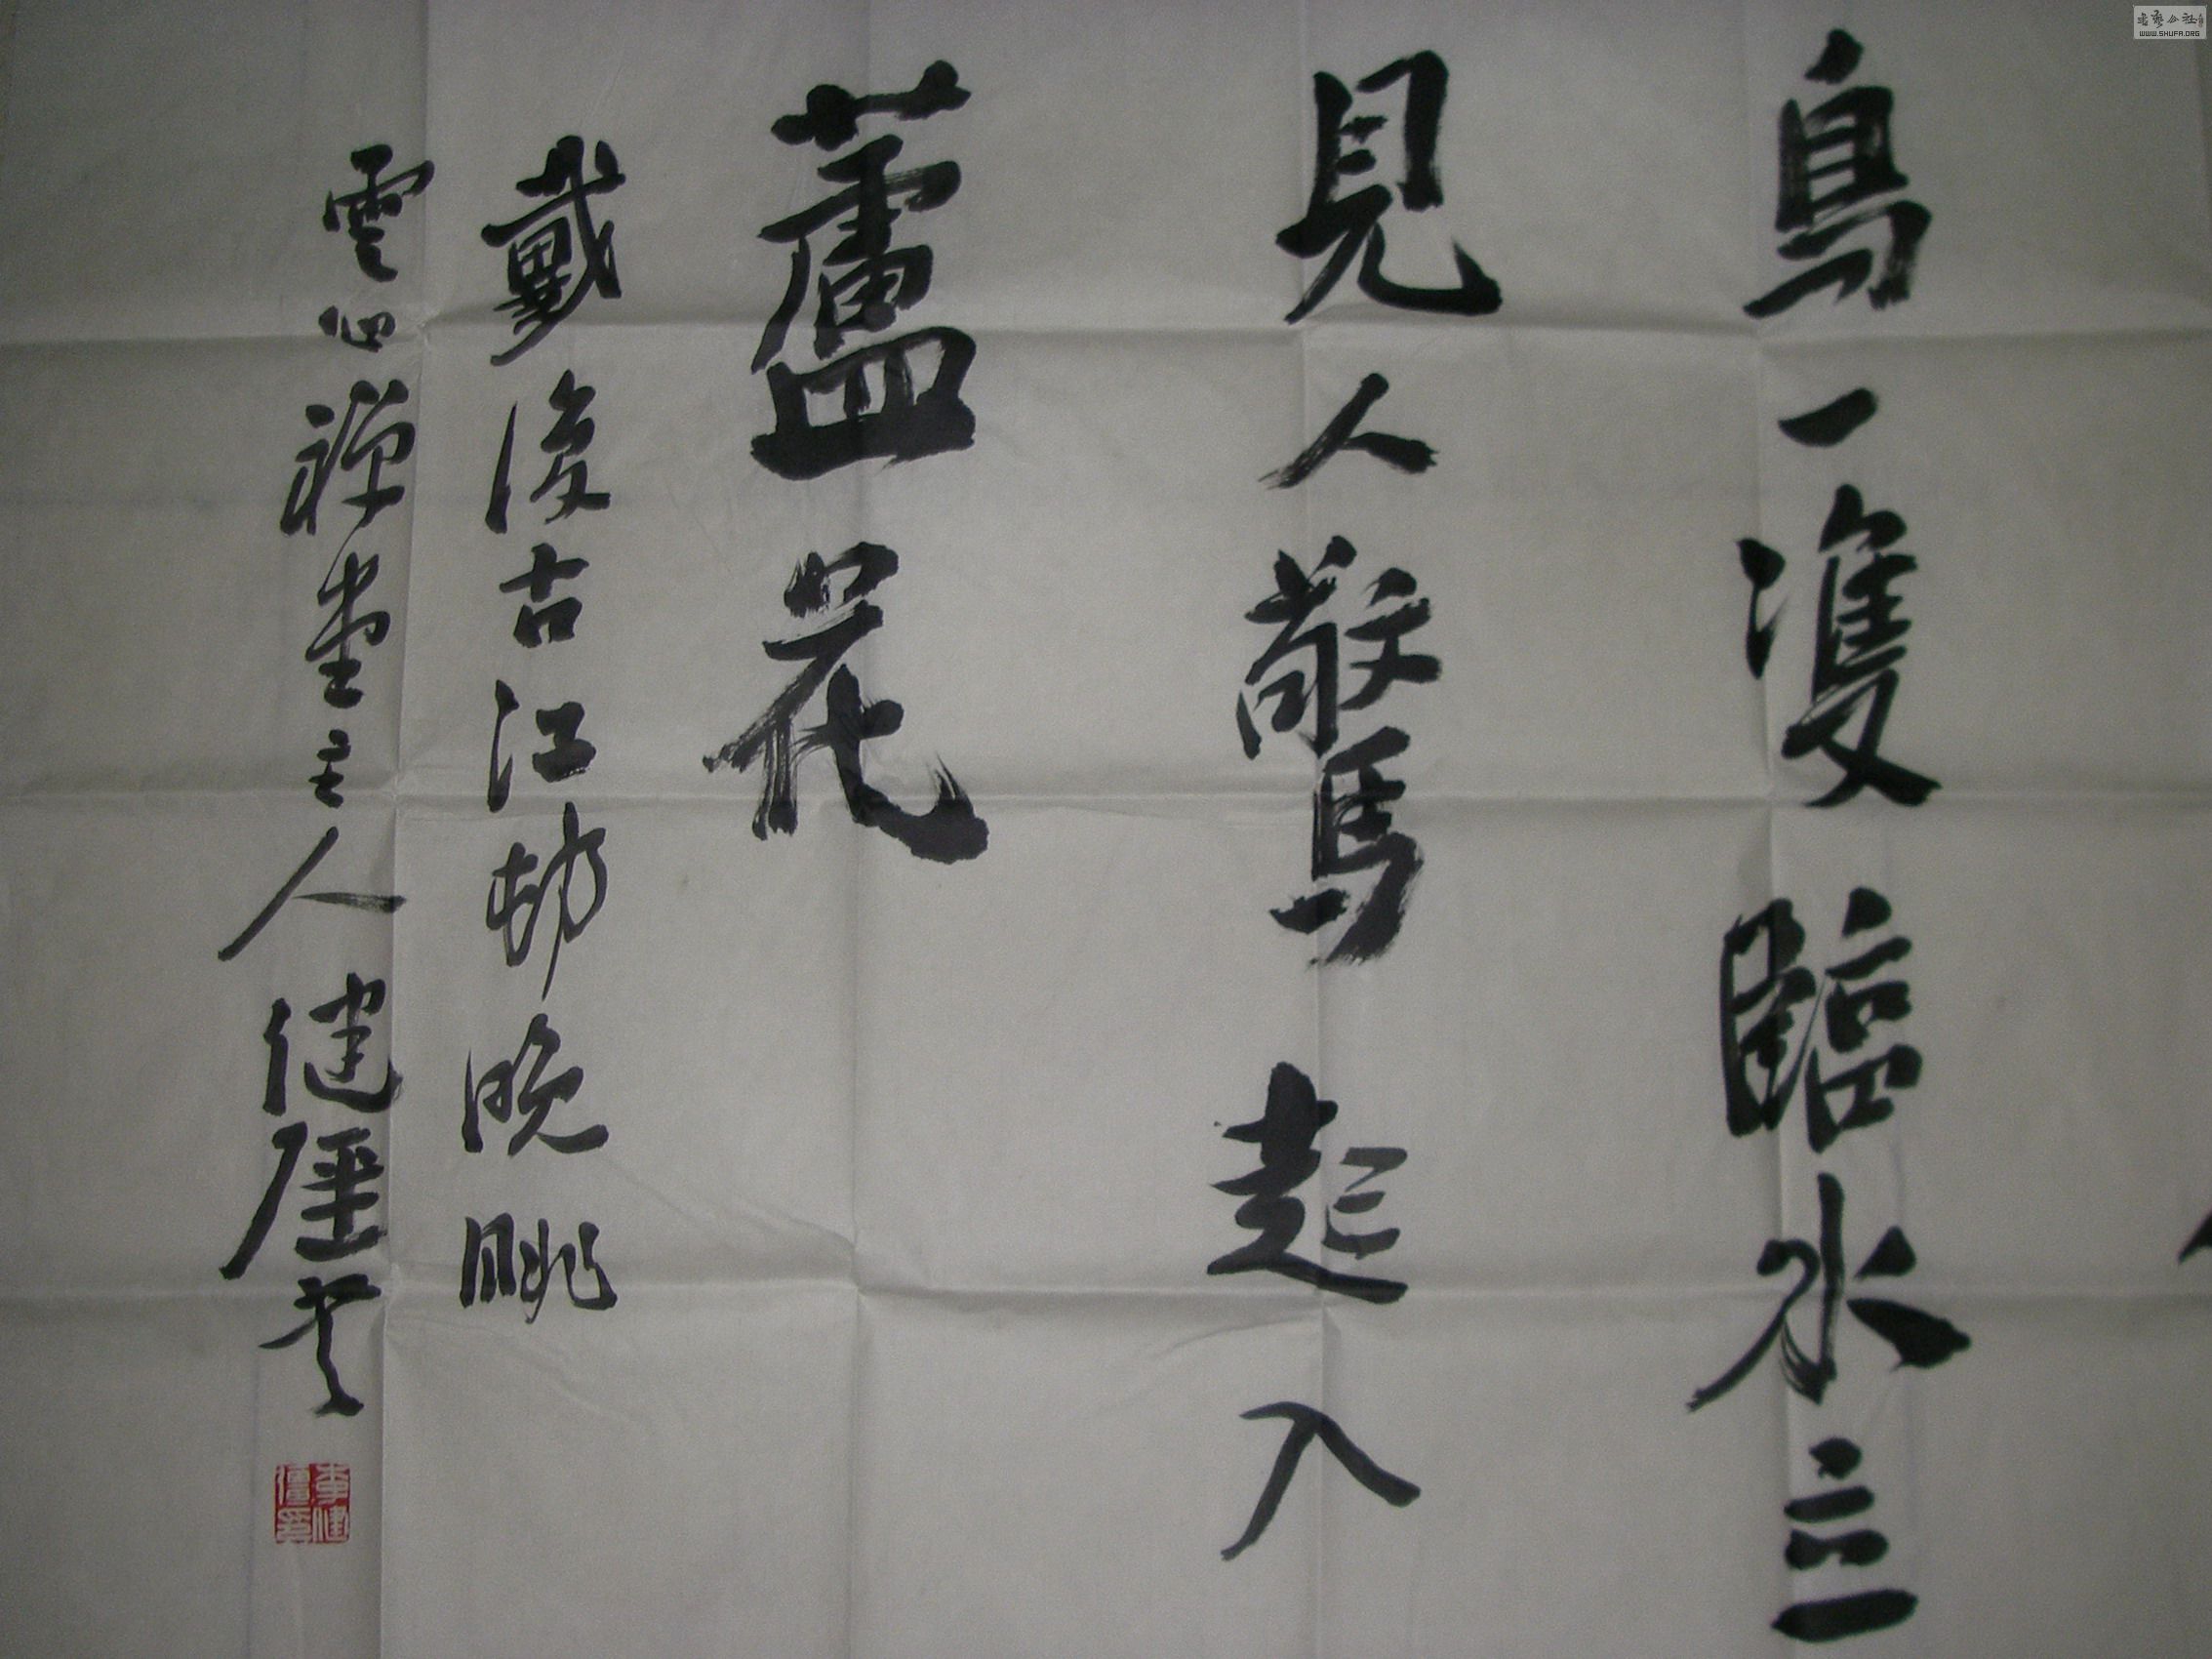 鳥一雙臨水立
見人驚起入
蘆花
戴復古江村晚眺
雲心禪堂主人健疆书
李健
疆印
WWW.SHUFA.ORG